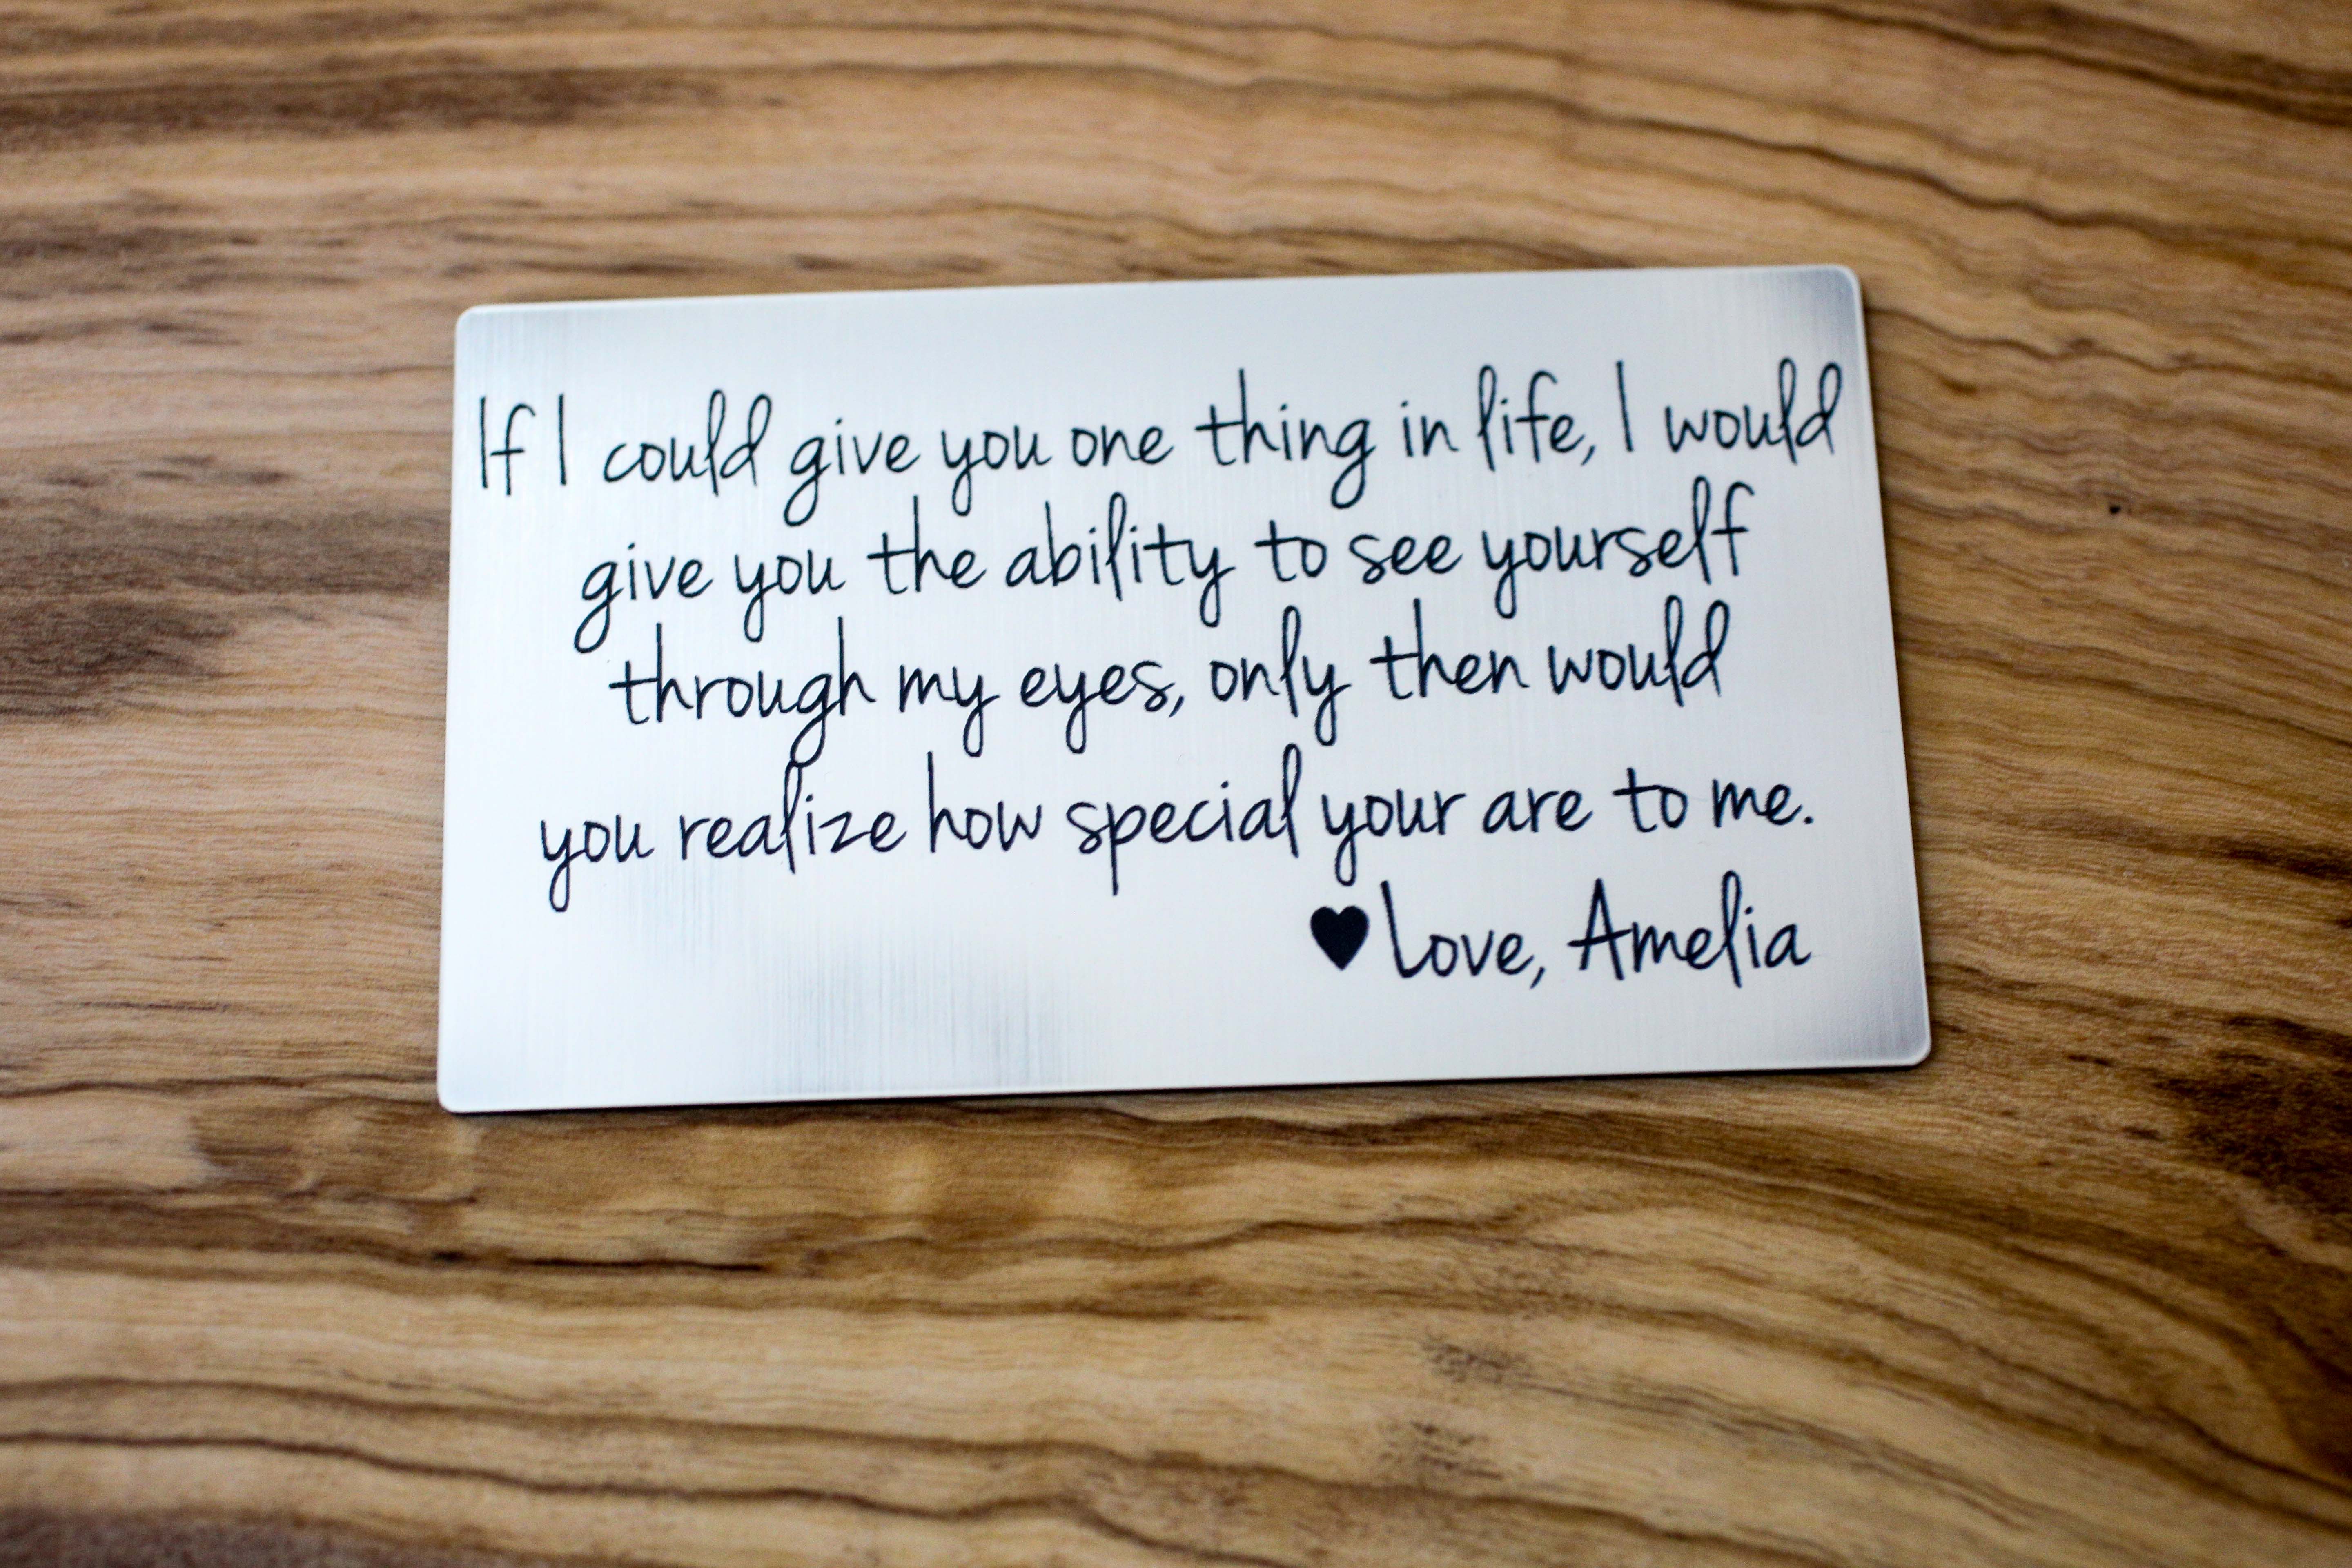 If I could give you one thing in life, I would
give you the ability to see yourself
through my eyes, only then would
you realize how special your are to me.
♥Love, Amelia